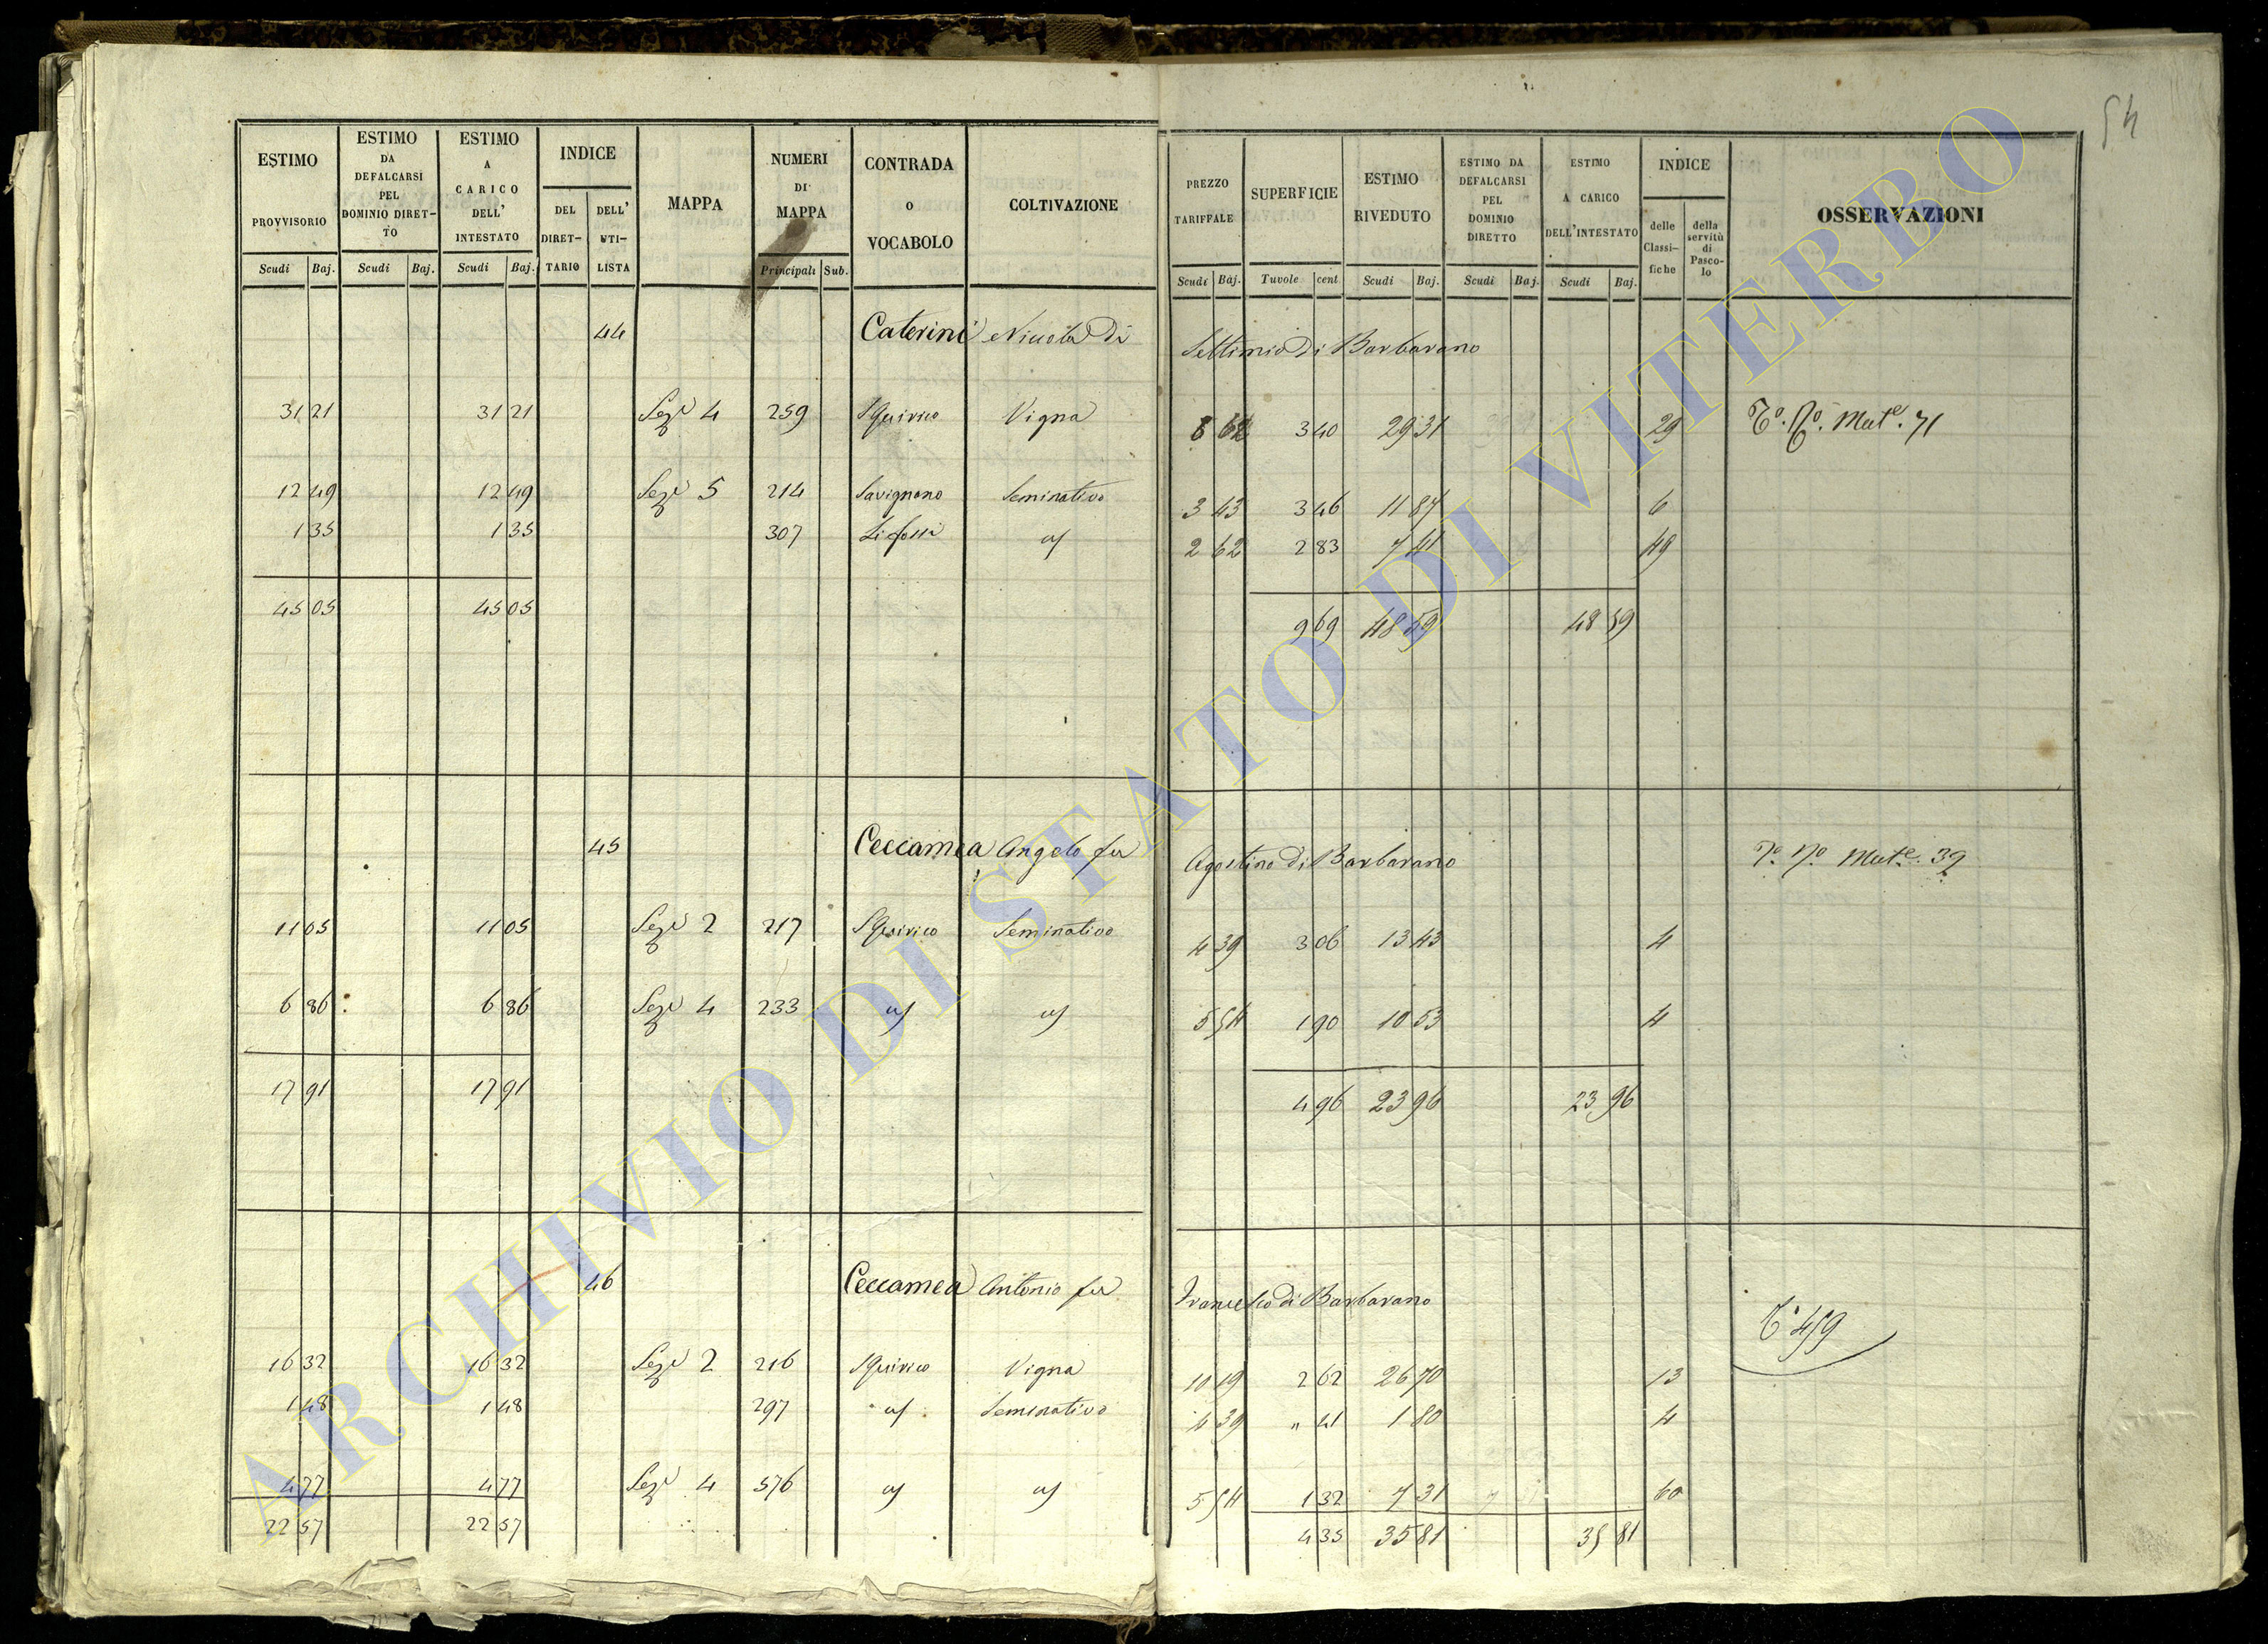 54
ESTIMO PROVVISORIO | ESTIMO DA DEFALCARSI PEL DOMINIO DIRETTO | ESTIMO A CARICO DELL' INTESTATO | INDICE | MAPPA | NUMERI DI MAPPA | CONTRADA O VOCABOLO | COLTIVAZIONE | PREZZO TARIFFALE | SUPERFICIE | ESTIMO RIVEDUTO | ESTIMO DA DEFALCARSI PEL DOMINIO DIRETTO | ESTIMO A CARICO DELL'INTESTATO | INDICE | OSSERVAZIONI
DEL DIRETTARIO | DELL' UTILISTA | delle Classifiche | della servitù di Pascolo
Scudi | Baj. | Scudi | Baj. | Scudi | Baj. | Principali | Sub. | Scudi | Baj. | Tavole | cent | Scudi | Baj. | Scudi | Baj. | Scudi | Baj.
44 Caterini Nicola Di Settimio Di Barbarano
31 21 | 31 21 | Sez.e 4 | 259 | S Quirico | Vigna | 8 62 | 3 40 | 29 31 | 29 | Mut.e 71
12 49 | 12 49 | Sez.e 5 | 214 | Savignano | Seminativo | 3 43 | 3 46 | 11 87 | 6
1 35 | 1 35 | 307 | Li fossi | 2 62 | 2 83 | 7 41 | 49
45 05 | 45 05 | 9 69 | 48 59 | 48 59
45 Ceccamea Angelo fu Agostino Di Barbarano Mut.e 39
11 05 | 11 05 | Sez.e 2 | 217 | S Quirico | Seminativo | 4 39 | 3 06 | 13 43 | 4
6 86 | 6 86 | Sez.e 4 | 233 | 5 54 | 1 90 | 10 53 | 4
17 91 | 17 91 | 4 96 | 23 96 | 23 96
46 Ceccamea Antonio fu Francesco di Barbarano
459
16 32 | 16 32 | Sez.e 2 | 216 | S Quirico | Vigna | 10 19 | 2 62 | 26 70 | 13
1 48 | 1 48 | 297 | Seminativo | 4 39 | " 41 | 1 80 | 4
4 77 | 4 77 | Sez.e 4 | 576 | 5 54 | 1 32 | 7 31 | 60
22 57 | 22 57 | 4 35 | 35 81 | 35 81
ARCHIVIO DI STATO DI VITERBO